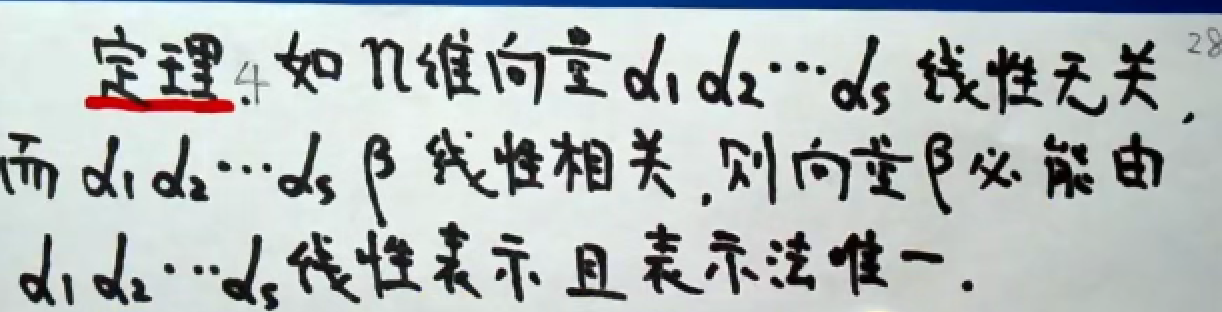 定理.4 如 n维向量 α1 α2 ⋯ αs 线性无关, 28
而 α1 α2 ⋯ αs β 线性相关, 则向量 β 必能由
α1 α2 ⋯ αs 线性表示且表示法唯一.